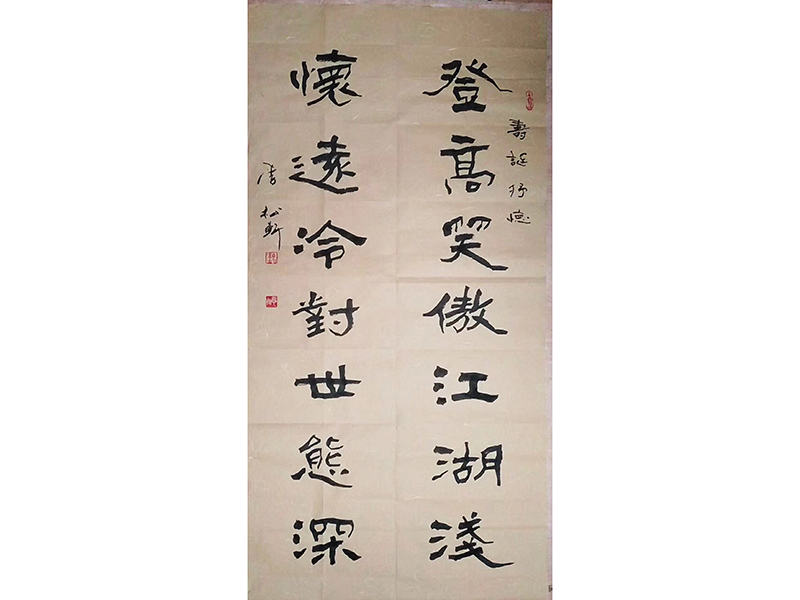 壽誕抒懷
登高笑傲江湖淺
懷遠冷對世態深
松軒